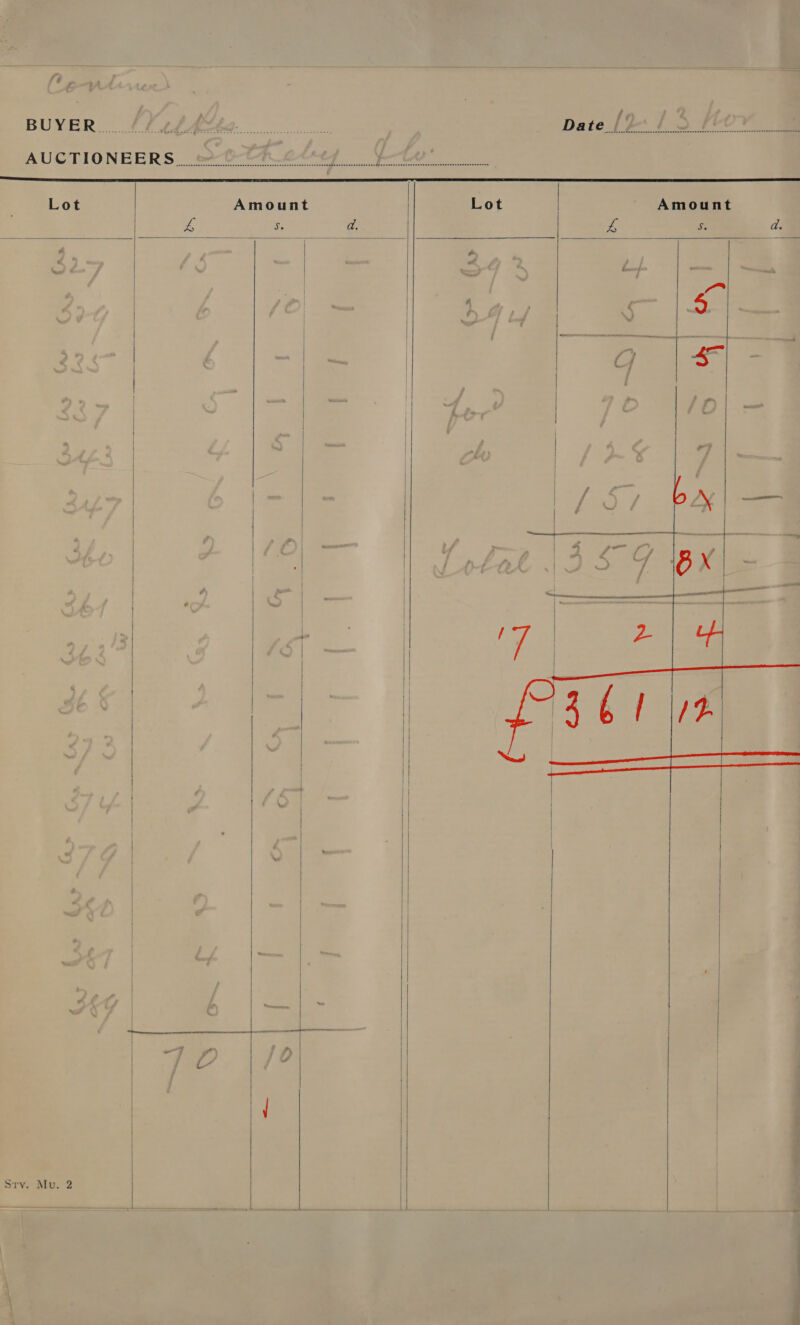 (Continued)
BUYER
Date 12-13 Nov
AUCTIONEERS Sotheby &
Lot Amount Lot Amount
£ s. d. £ s. d.
327 15 - - 393 4 - -
329 6 10 - 394 5 5 -
335 6 - - 9 5 -
337 5 - - for'd 70 10 -
343 4 5 - do 128 7 -
347 6 - - 151 -
360 2 10 - Total 359 8 -
361 2 5 - 17 2 4
363 3 15 - £361 12
368 2 - -
373 1 5 -
374 2 15 -
379 1 5 -
380 2 - -
387 4 - -
389 6 - -
70 10
Srv. Mu. 2